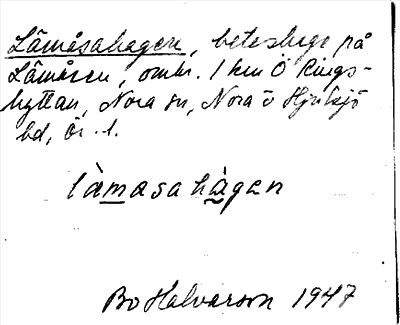 Låmåsahagen, beteshage på
Låmåsen, omkr. 1 km Ö Rings-
hyttan, Nora sn, Nora o Hjulsjö
bd, Ör. l.
làmasahàgan
Bo Halvarson 1947